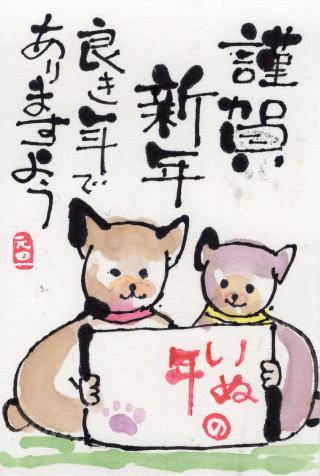 謹賀
新年
良き年で
ありますよう
元旦
いぬの
年